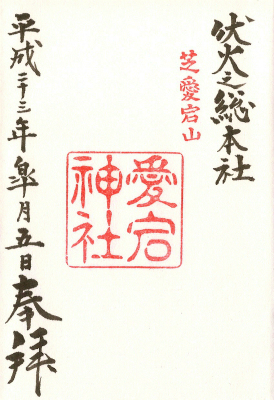 伏火之総本社
芝愛宕山
愛宕
神社
平成二十三年皐月五日
奉拝